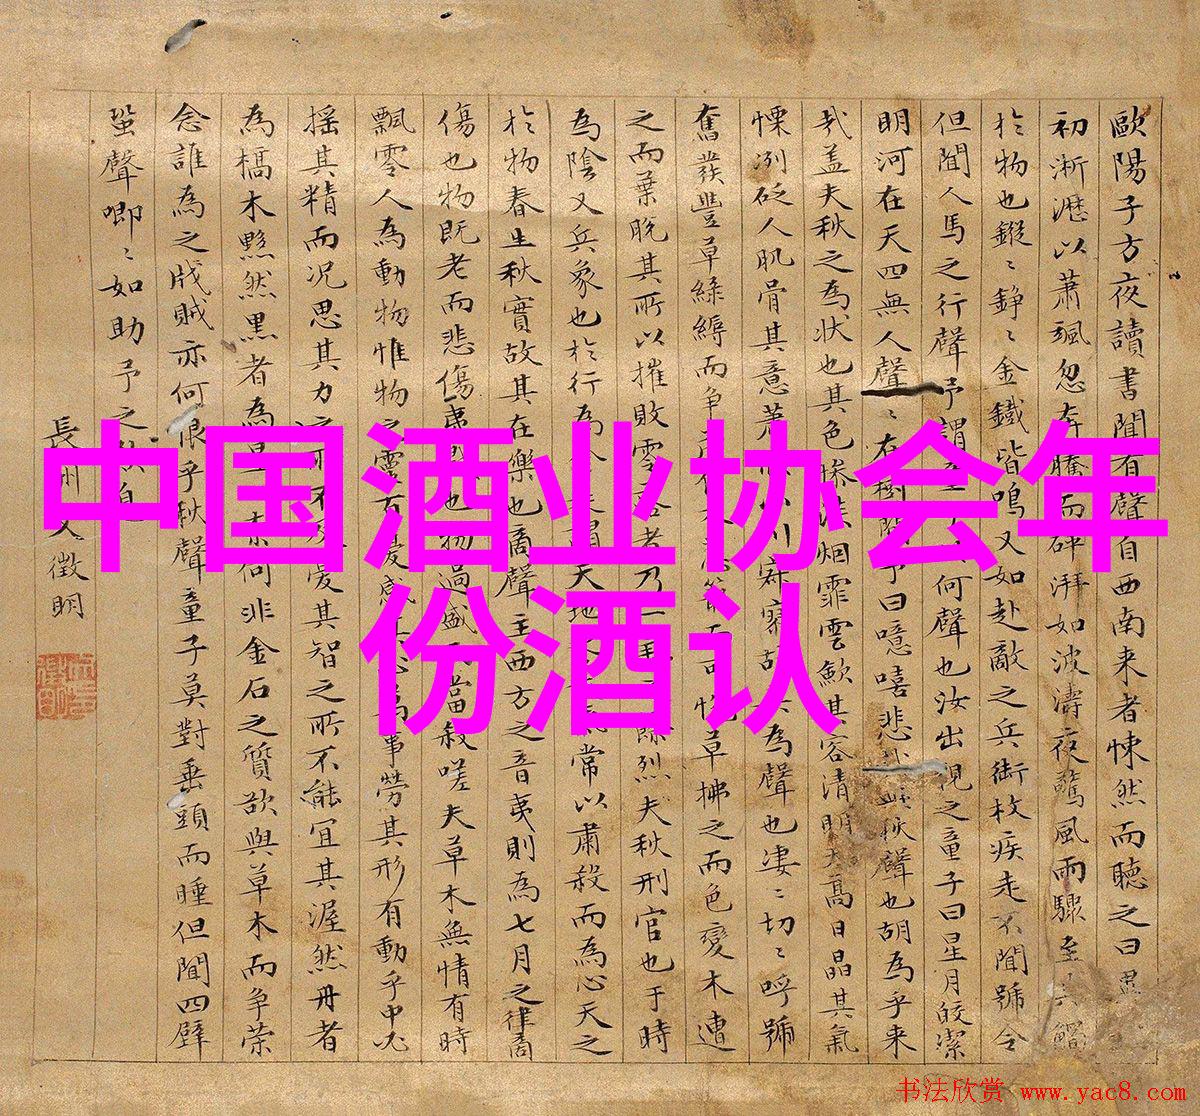 歐陽子方夜讀書聞有聲自西南来者悚然而聽之曰異
初淅瀝以蕭颯忽奔騰而砰湃如波濤夜驚風雨驟至其觸
於物也鏦〻錚〻金鐵皆鳴又如赴敵之兵銜枚疾走不聞號令
但聞人馬之行聲予謂童 何聲也汝出視之童子曰星月皎潔
明河在天四無人聲〻在樹間予曰噫嘻悲 秋聲也胡為乎来
哉盖夫秋之為状也其色惨淡烟霏雲歛其容清明天高日晶其氣
慄洌砭人肌骨其意蕭 川寂寥故其為聲也凄〻切〻呼號
奮發豐草緑縟而争 可悅草拂之而色變木遭
之而葉脫其所以摧敗零 者乃 餘烈夫秋刑官也于時
為陰又兵象也於行為 天地 常以肅殺而為心天之
於物春生秋實故其在樂也商聲主西方之音夷則為七月之律商
傷也物既老而悲傷夷 也物過盛 當殺嗟夫草木無情有時
飄零人為動物惟物之靈百憂感 心萬事勞其形有動乎中必
摇其精而况思其力之所不 憂其智之所不能宜其渥然丹者
為槁木黟然黒者為星 何非金石之質欲與草木而争荣
念誰為之戕賊亦何恨乎秋聲童子莫對垂頭而睡但聞四壁
蛩聲唧〻如助予之歎息
長洲文徵明
中国酒业协会年
份酒认
书法欣赏 www.yac8.com